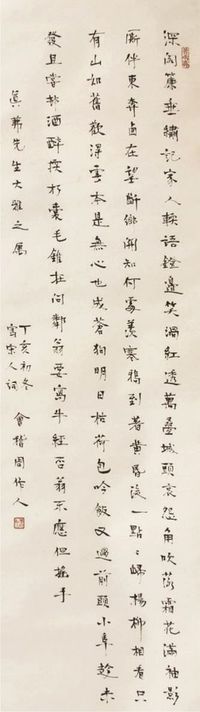 深閣簾垂繡記家人輭語鐙邊笑渦紅透萬疊城頭哀怨角吹落霜花滿袖影
廝伴東奔西走望斷鄉關知何處羨寒鴉到著黃昏後一點〻歸楊柳相看只
有山如舊歎浮雲本是無心也成蒼狗明日枯荷包冷飯又過前頭小阜趁未
發且嘗村酒醉探枵囊毛錐在問鄰翁要寫牛經否翁不應但搖手
先生大雅之屬
丁亥初冬
寫宋人詞
會稽周作人